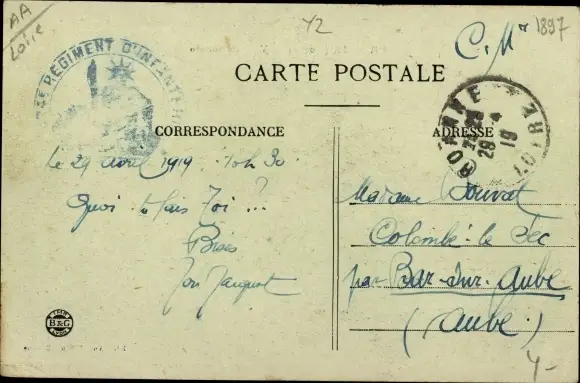 AA
Loire
Y2
C. M
1897
REGIMENT D'INFANTERIE
CARTE POSTALE
CORRESPONDANCE
ADRESSE
ROANNE
29 4 19
LOIRE
Le 29 avril 1919. 10h 30
Quoi tu fais Toi ... ?
Bises
Ton
Madame Bouvet
Colombé-le Sec
par Bar-sur-Aube
(Aube)
B&G
4-